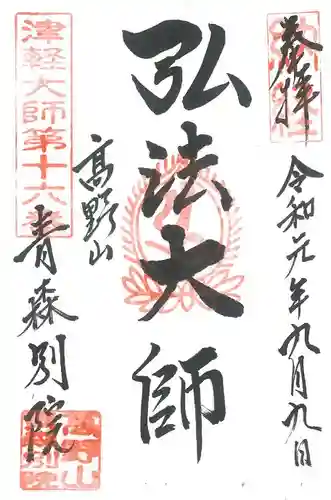 奉拝
令和元年九月九日
弘法大師
高野山
津軽大師第十六番
青森別院